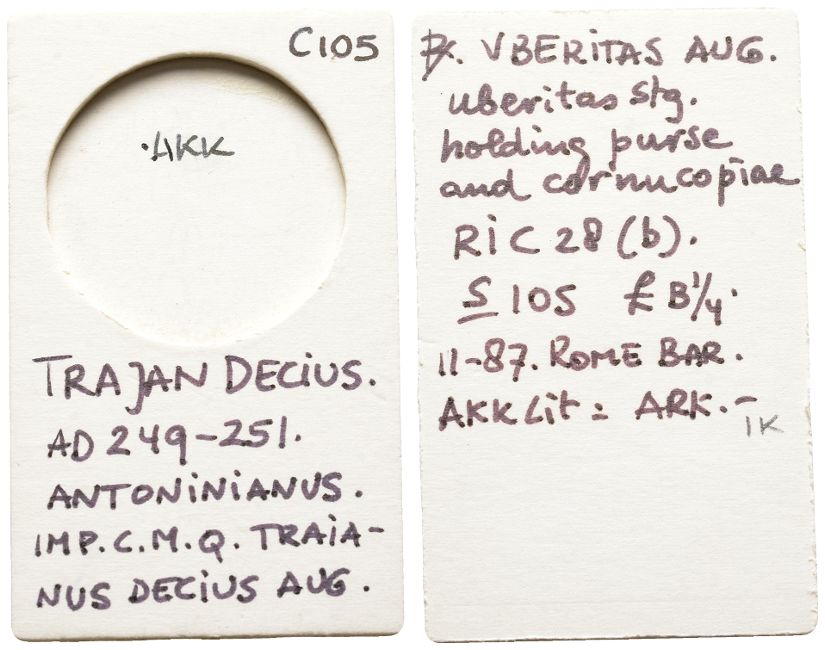 C105
·AKK
TRAJAN DECIUS.
AD 249-251.
ANTONINIANUS.
IMP.C.M.Q. TRAIA-
NUS DECIUS AUG.
Rx. VBERITAS AUG.
uberitas stg.
holding purse
and cornucopiae
RIC 28 (b).
S 105 £ B 1/4.
11-87. ROME BAR.
AKK Lit = ARK.-
IK